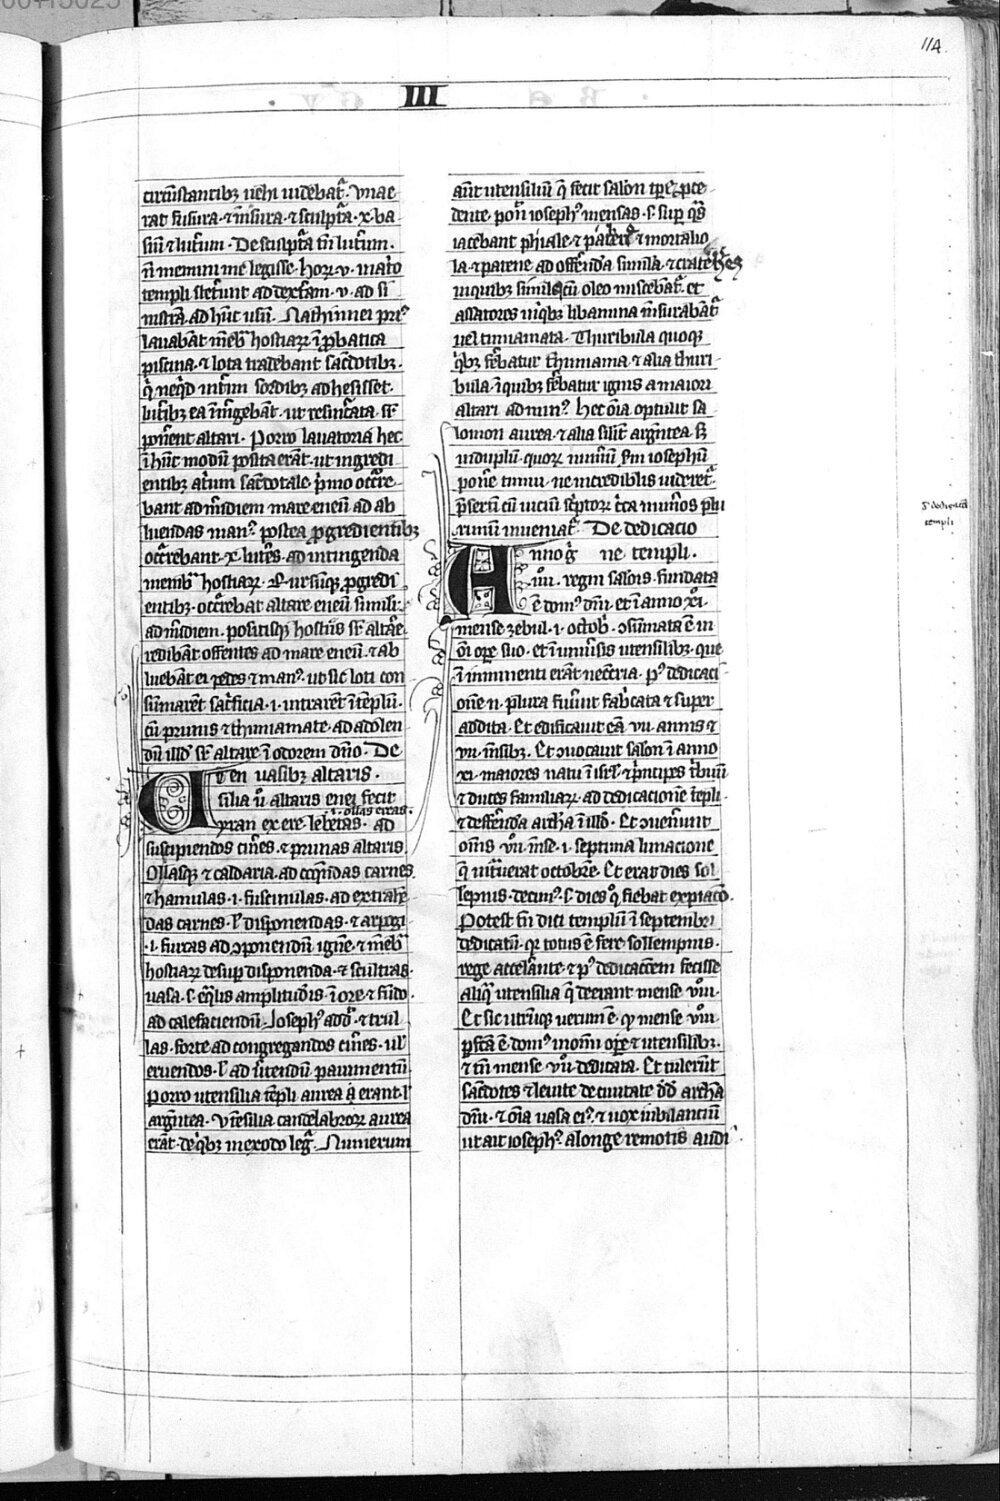 114.
III
circu̅stantibꝫ uehi uideba̅t᷑. Vnae
rat fusura. ⁊ i̅nsura. ⁊ sculpt᷑a. x. ba
sim ⁊ lut᷑um. De sculpt᷑a tn̅ lut᷑um.
n̅ memini me legisse. Hoꝝ. v. mat᷑o
templi stet᷑unt ad dext᷑am. v. ad si
nist᷑a. ad hu̅c usu̅. Nathinnei pri᷒
lauaba̅t me̅b᷑ hostiaꝝ i̅ ꝓbatica
piscina. ⁊ lota tradebant sac᷑dotibꝫ.
lut᷑ibꝫ ea i̅mgeba̅t. ut
pone̅rent altari. Porro lauatoria hec
i̅ hu̅c modu̅ posita era̅t. ut ingredi
entibꝫ at᷑ium sac᷑dotale. p̾mo occ᷑re
bant ad m̅idiem mare eneu̅ ad ab
luendas man᷒. postea ꝓgredientibꝫ
occ᷑rebant. x. lut᷑es. ad intingenda
memb᷑ hostiaꝝ. Rursu̅qꝫ ꝓgredi
entibꝫ. occ᷑rebat altare eneu̅ simili᷑.
ad m̅idiem. positisqꝫ hostiis sr̅ altar̅e
rediba̅t offe̅tes ad mare eneu̅. ⁊ ab
lueba̅t ei pedes ⁊ man᷒. ut sic loti con
su̅mare̅t sac᷑ficia. i. intrare̅t i̅ te̅plu̅.
cu̅ prunis ⁊ thimiamate. ad adolen
du̅ illd̅ sr̅ altare i̅ odorem dn̅o. De
ten uasibꝫ altaris.
silia u̾o altaris enei fecit
yran ex ere. lebetas. i. ollas ereas. ad
suscipiendos cin̅es. ⁊ prunas altaris
Ollasqꝫ ⁊ caldaria. ad coq̅ndas carnes.
⁊ hamulas. i. fuscinulas. ad extrahe̅
das carnes. ł disponendas. ⁊ arpagi
. i. furcas ad ꝯponendu̅ igne̅. ⁊ me̅b᷑
hostiaꝝ desup disponenda. ⁊ scultras.
uasa. s. eq̅lis amplitudi̅s. i̅ ore ⁊ fu̅do.
ad calefaciendu̅. Ioseph᷒ add̅. ⁊ trul
las. forte ad congregandos cin̅es. ul̅
eruendos. ł ad sc̅tendu̅ pauimentu̅
Porro utensilia te̅pli aurea q̅ erant. ł
arge̅ntea. Vte̅nsilia candelabroꝝ aurea
era̅t. de q̾bꝫ in exodo leg᷑. Numerum
aut̅ utensiliu̅ q̅ fecit salo̅n tp̅re p̅ce
dente. pon̅ ioseph᷒ mensas. s. sup q᷑s
iacebant phiale. ⁊ pate᷑e ⁊ mortario
la. ⁊ patene ad offe̅nda simila̅. ⁊ crate᷑es
in quibꝫ simila̅ cu̅ oleo misceba̅t᷑. et
assatores in q̾bꝫ libamina me̅suraba̅t᷑
uel timiamata. Thuribula quoqꝫ
q̾bꝫ fe̅batur thimiama. ⁊ alia thuri
bula. i̅ quibꝫ fe̅batur ignis a maiori
altari ad min᷒. Hec o̅ia optulit sa
lomon aurea. ⁊ alia silit̅ arge̅ntea. sꝫ
in duplu̅. quoꝝ nume̅ru̅ sm̅ iosephu̅
pon̅e timui. ne incredibilis uideret᷑.
p̅se̅rtim cu̅ uiciu̅ sc̅ptoꝝ c̾ca num̅os plu
rimu̅ inueniat᷑. De dedicacio
Anno g̾ ne templi.
.iiii̾o. regni salo̅is. fundata
e̅ dom᷒ dn̅i. et i̅ anno xi.
mense zebul. i. octob᷑. ꝯsu̅mata e̅ in
o̅i ope̅ suo. et i̅ uniu̅sis utensilibꝫ. que
i̅ inminenti era̅t nece̅ria. p᷒ dedicaci
one̅ n. plura fueru̅t fab᷑cata ⁊ super
addita. Et edificauit ea̅ vii. annis ⁊
vii. me̅sibꝫ. Et ꝯuocauit salo̅n i̅ anno
xi. maiores natu i̅ isrl̅. ⁊ p̾ncipes t̾buu̅
⁊ duces familiaꝝ. ad dedicacione̅ te̅pli.
⁊ deffe̅nda archa̅ i̅ illd̅. Et ꝯuene̅runt
om̅s vii̾o me̅se. i. septima lunacione
q̅ int᷑uerat octobre̅. Et erat dies sol
lepnis. decim᷒. s. dies q̾o fiebat expiaco̅.
Potest tn̅ dici templu̅ i̅ septembri
dedicatu̅. qꝛ totus e̅ fere sollempnis.
rege accelera̅nte. ⁊ p᷒ dedicacc̅em fecisse
aliq̅ utensilia q̅ deerant mense viii̾o.
Et sic utru̅qꝫ uerum e̅. qͥ mense viii̾o
pf̅c̅a e̅ dom᷒ in om̅i ope̅ ⁊ utensilibꝫ.
⁊ tn̅ mense vii̾o dedicata. Et tuleru̅t
sac᷑dotes ⁊ leuite de ciuitate dd̅ archa̅
dn̅i. ⁊ o̅ia uasa ei᷒. ⁊ uox iubilanciu̅
ut ait ioseph᷒. a longe remotis audi
De dedicacione
templi